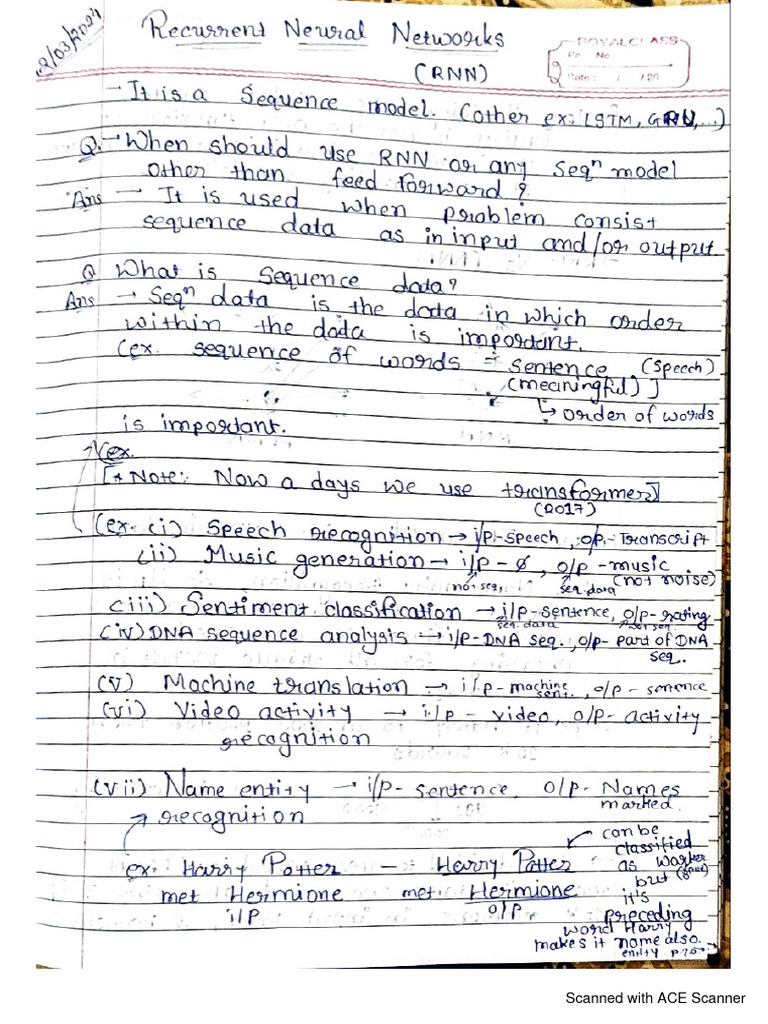 2/03/2024
Recurrent Neural Networks
(RNN)
ROYALCLASS
Pg. No.
Date: / /20
- It is a Sequence model. (other ex: LSTM, GRU,...)
Q. → When should use RNN or any Seqⁿ model
other than feed forward?
Ans → It is used when problem consist
sequence data as in input and/or output.
Q What is sequence data?
Ans → Seqⁿ data is the data in which order
within the data is important.
(ex. sequence of words = sentence (speech)
(meaningful) ]
↳ order of words
is important.
(ex.
[* Note: Now a days we use transformer]
(2017)
(ex. (i) Speech recognition → i/p - speech, o/p - Transcript
(ii) Music generation → i/p - ∅, o/p - music
not seq. seq. data (not noise)
(iii) Sentiment classification → i/p - sentence, o/p - rating
seq. data not seq.
(iv) DNA sequence analysis → i/p - DNA seq., o/p - part of DNA
seq.
(v) Machine translation → i/p - machine sent., o/p - sentence
(vi) Video activity → i/p - video, o/p - activity
recognition
(vii) Name entity → i/p - sentence, o/p - Names
marked.
recognition
ex: Harry Potter — Harry Potter
met Hermione met Hermione
i/p o/p
can be
classified
as
but
it's
preceding
word Harry
makes it name also.
entity
Scanned with ACE Scanner